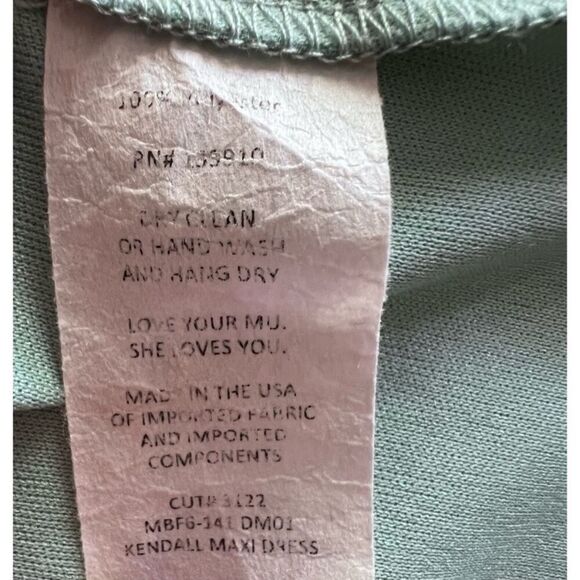 100% Polyester
RN# 135910
DRY CLEAN
OR HAND WASH
AND HANG DRY
LOVE YOUR MU.
SHE LOVES YOU.
MADE IN THE USA
OF IMPORTED FABRIC
AND IMPORTED
COMPONENTS
CUT# 3122
MBF6-141 DM01
KENDALL MAXI DRESS